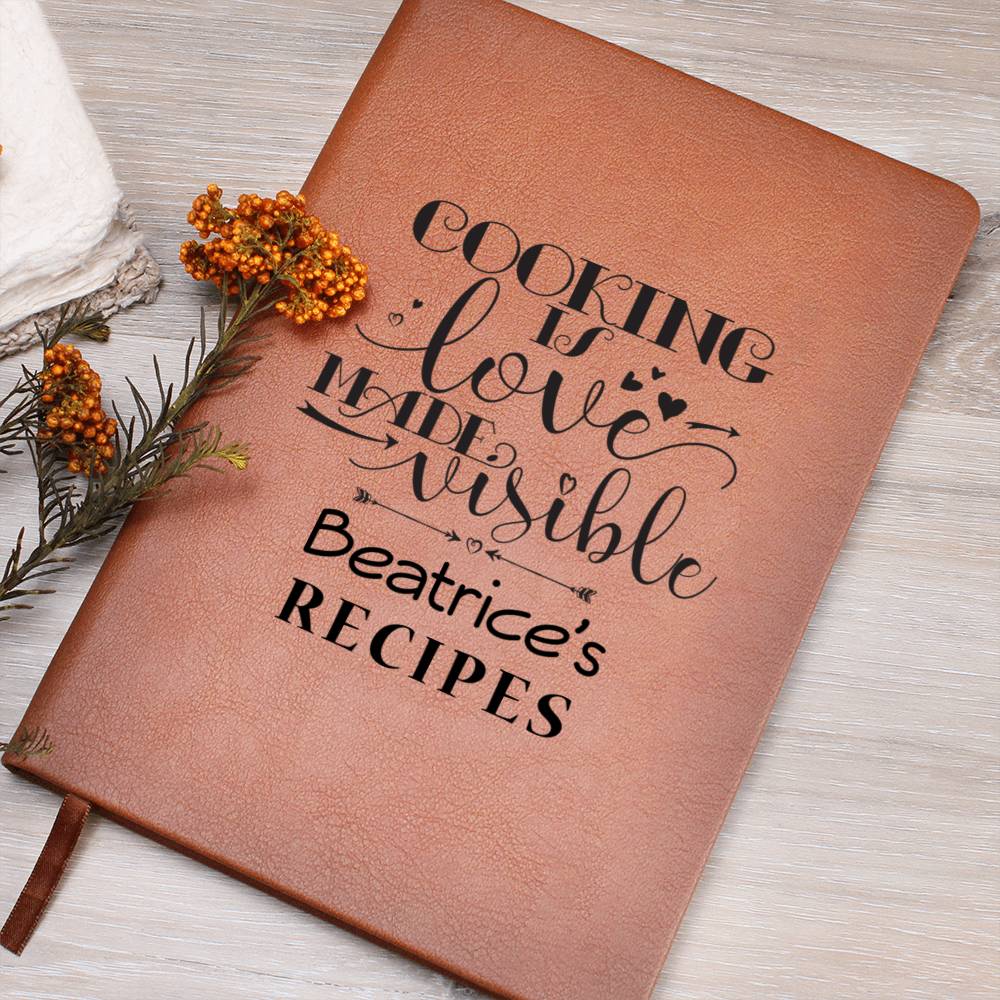 COOKING
IS
love
MADE
visible
Beatrice's
RECIPES